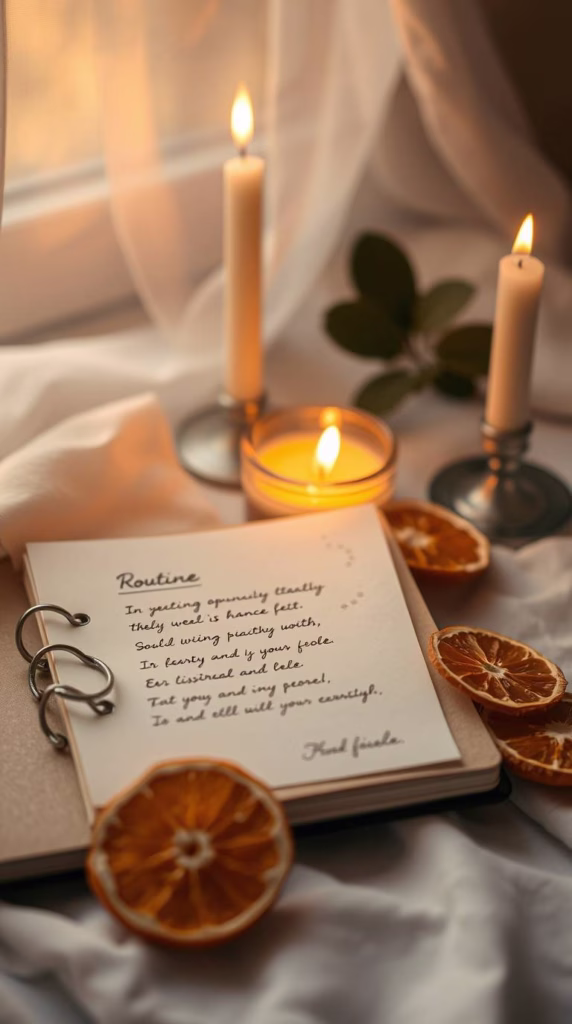 Routine
In yecting opunuily tleatly
thely weel is hance feit.
Sould wiing piacthy woith,
In fersty and iy your feole.
Eer lissireal and lele.
Tat you and iny peorel,
Is and elll will your earrstigh.